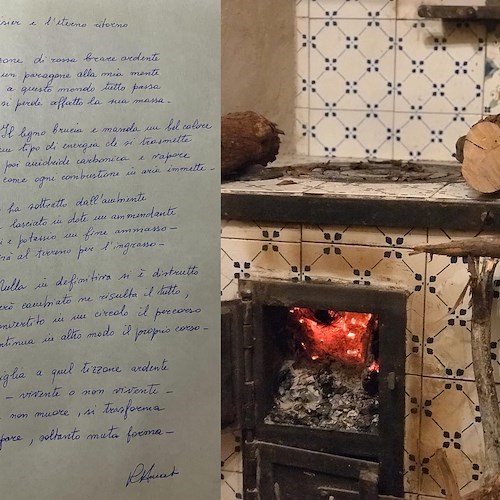 isier e l'eterno ritorno
zone di rossa brace ardente
un paragone alla mia mente
a questo mondo tutto passa
si perde affatto la sua massa -
Il legno brucia e manda un bel calore
un tipo di energia che si trasmette
poi anidride carbonica e vapore
come ogni combustione in aria immette -
ha sottratto dall'ambiente
lasciato in dote un ammendante
i e potassio un fine ammasso -
rà al terreno per l'ingrasso -
Nulla in definitiva si è distrutto
erò cambiato ne risulta il tutto,
onvertito in un circolo il percorso
ontinua in altro modo il proprio corso -
iglia a quel tizzone ardente
- vivente o non vivente -
non muore, si trasforma
pare, soltanto muta forma -